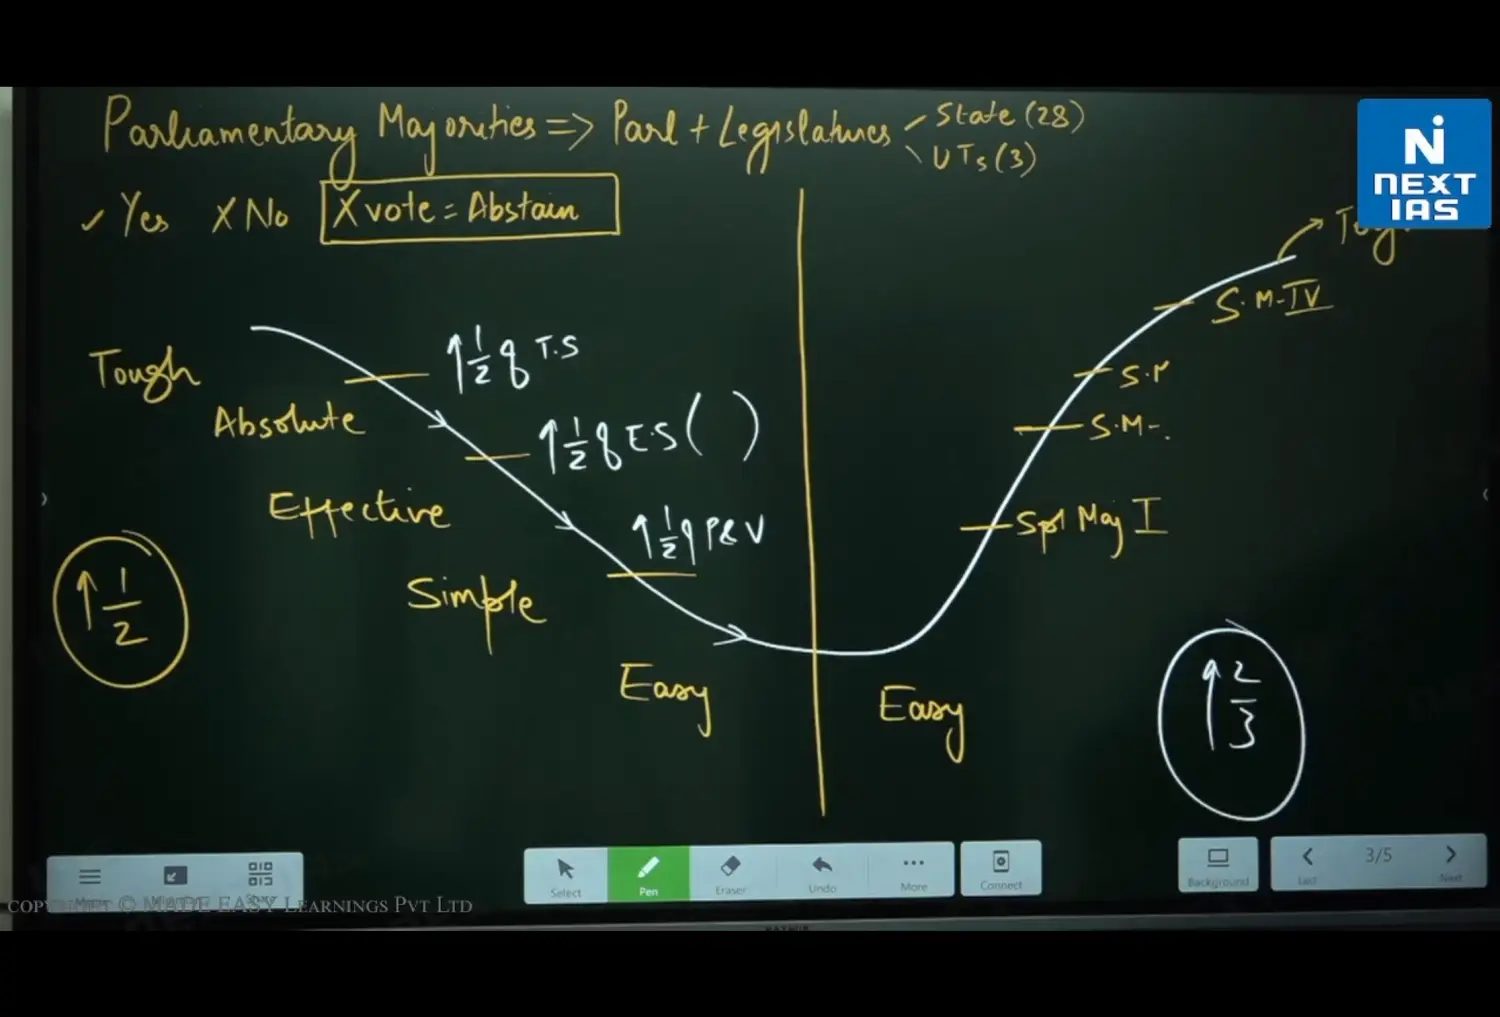 Parliamentary Majorities => Parl + Legislatures
State (28)
UTs (3)
✓ Yes X No X vote = Abstain
NEXT
IAS
S.M-IV
↑ 1/2 of T.S
Tough
S.M-
Absolute
↑ 1/2 of E.S ( )
Effective
Spl Maj I
↑ 1/2 of P & V
↑ 1/2
Simple
Easy
Easy
↑ 2/3
Select
Pen
Eraser
Undo
More
Connect
Background
3/5
Next
COPYRIGHT © MADE EASY LEARNINGS PVT LTD